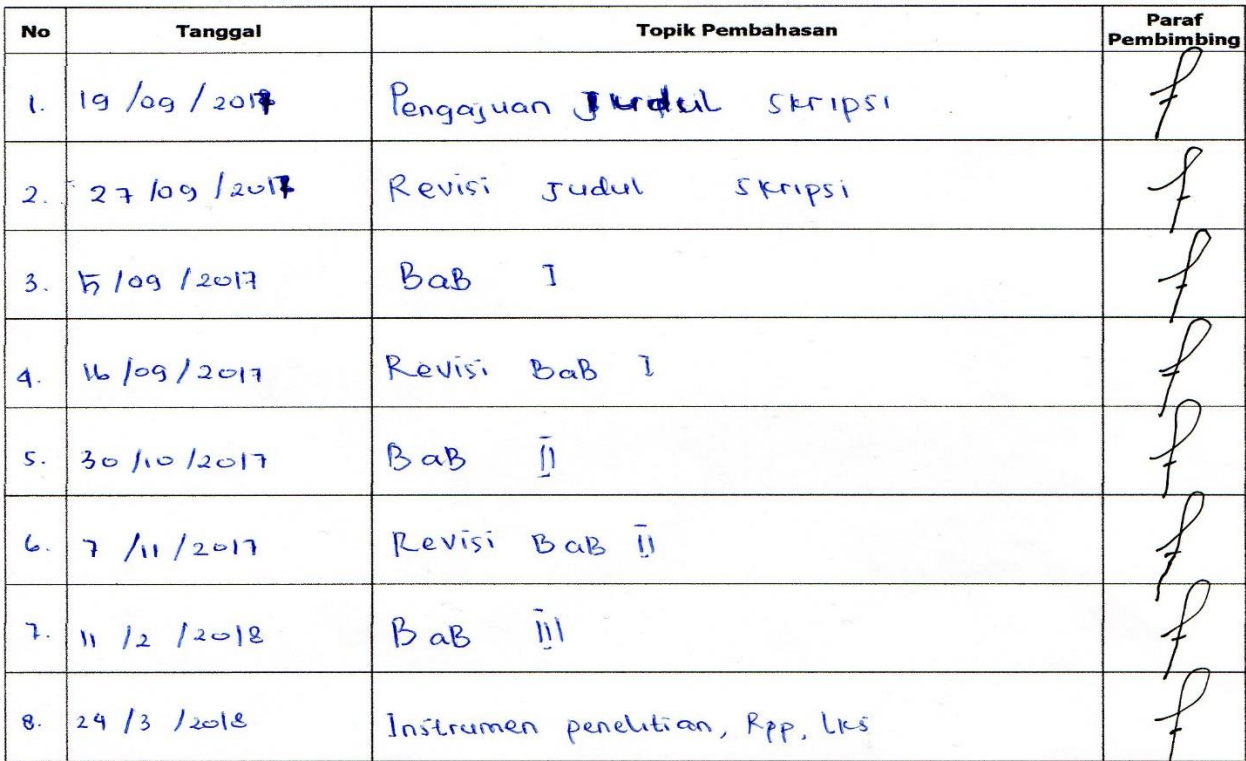 No Tanggal Topik Pembahasan Paraf Pembimbing
1. 19/09/2017 Pengajuan Judul skripsi
2. 27/09/2017 Revisi Judul skripsi
3. 5/09/2017 BaB I
4. 16/09/2017 Revisi BaB I
5. 30/10/2017 BaB II
6. 7/11/2017 Revisi BaB II
7. 11/2/2018 BaB III
8. 24/3/2018 Instrumen penelitian, Rpp, LKS